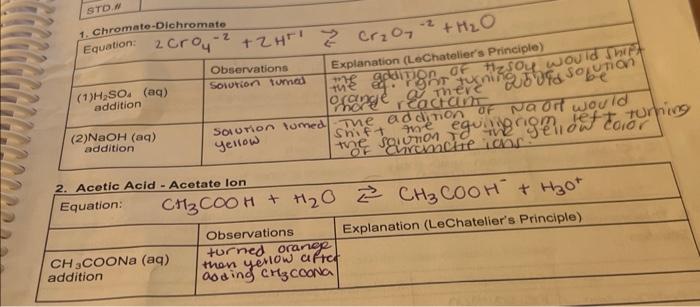 STD.#
1. Chromate-Dichromate
Equation: 2CrO₄⁻² + 2H⁺¹ ⇄ Cr₂O₇⁻² + H₂O
Observations
Explanation (LeChatelier's Principle)
(1)H₂SO₄ (aq)
addition
Solution turned
the addition of H₂SO₄ would shift
the eq. right turning the solution
orange as there would be
more reactant
(2)NaOH (aq)
addition
Solution turned
yellow
The addition of NaOH would
shift the equilibriom left turning
the solution to the yellow color
of chromate ions.
2. Acetic Acid - Acetate Ion
Equation: CH₃COOH + H₂O ⇄ CH₃COOH⁻ + H₃O⁺
Observations
Explanation (LeChatelier's Principle)
CH₃COONa (aq)
addition
turned orange
then yellow after
adding CH₃COONa